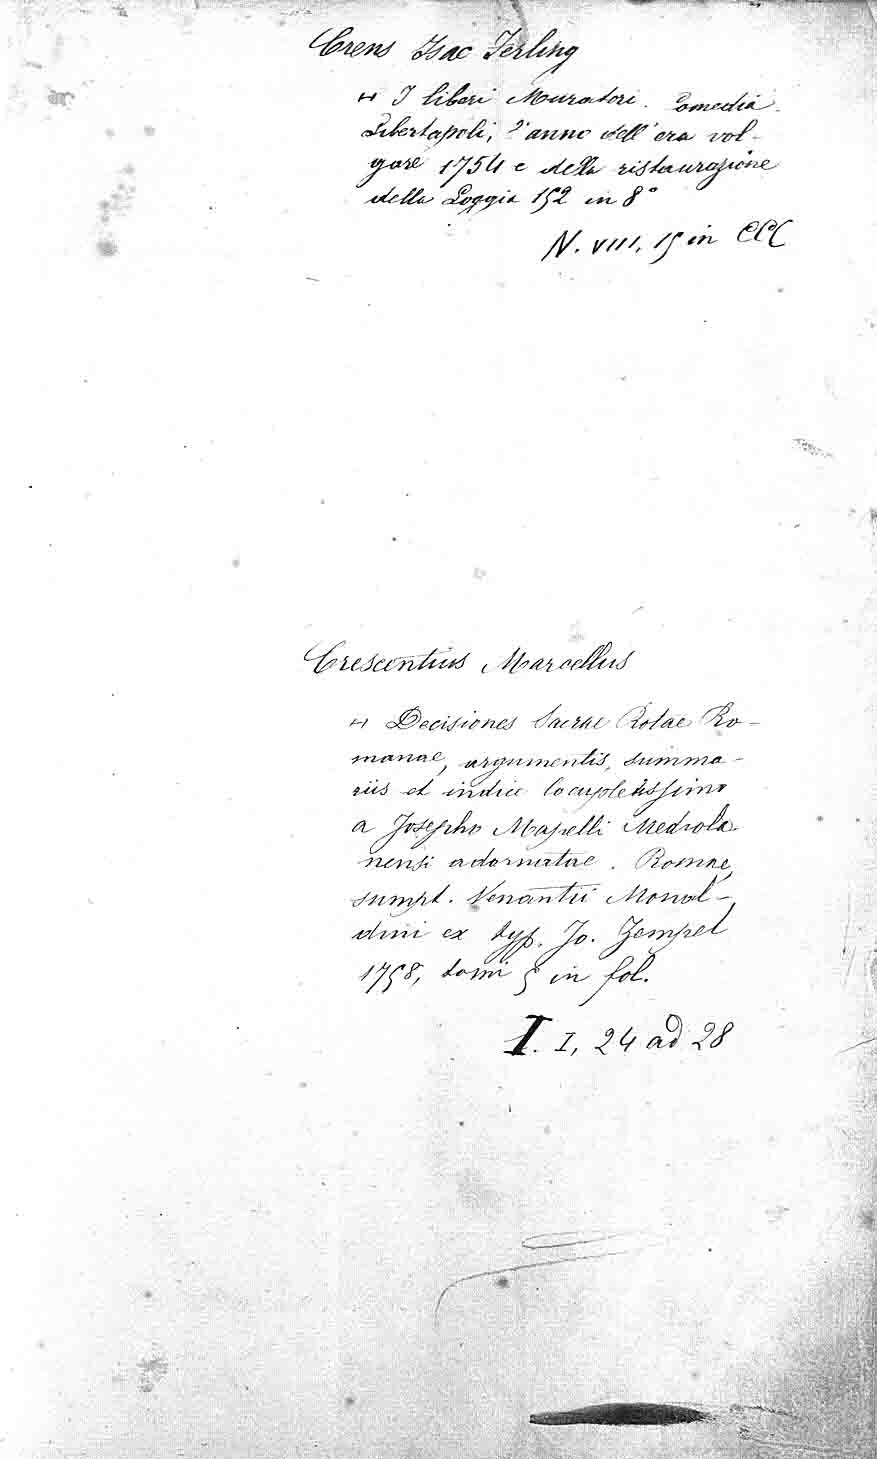 Crens Isac Ferling
H I liberi Muratori. Comedia.
Libertapoli, l'anno dell'era vol-
gare 1754 e della ristaurazione
della Loggia 152 in 8°
N. VIII, 15 in CCC
Crescentius Marcellus
H Decisiones Sacrae Rotae Ro-
manae, argumentis, summa-
riis et indice locupletissimo
a Josepho Mapelli Mediola
nensi adornatae. Romae,
sumpt. Venantii Monal-
dini ex typ. Jo. Zempel
1758, tomi 5 in fol.
I. I, 24 ad 28